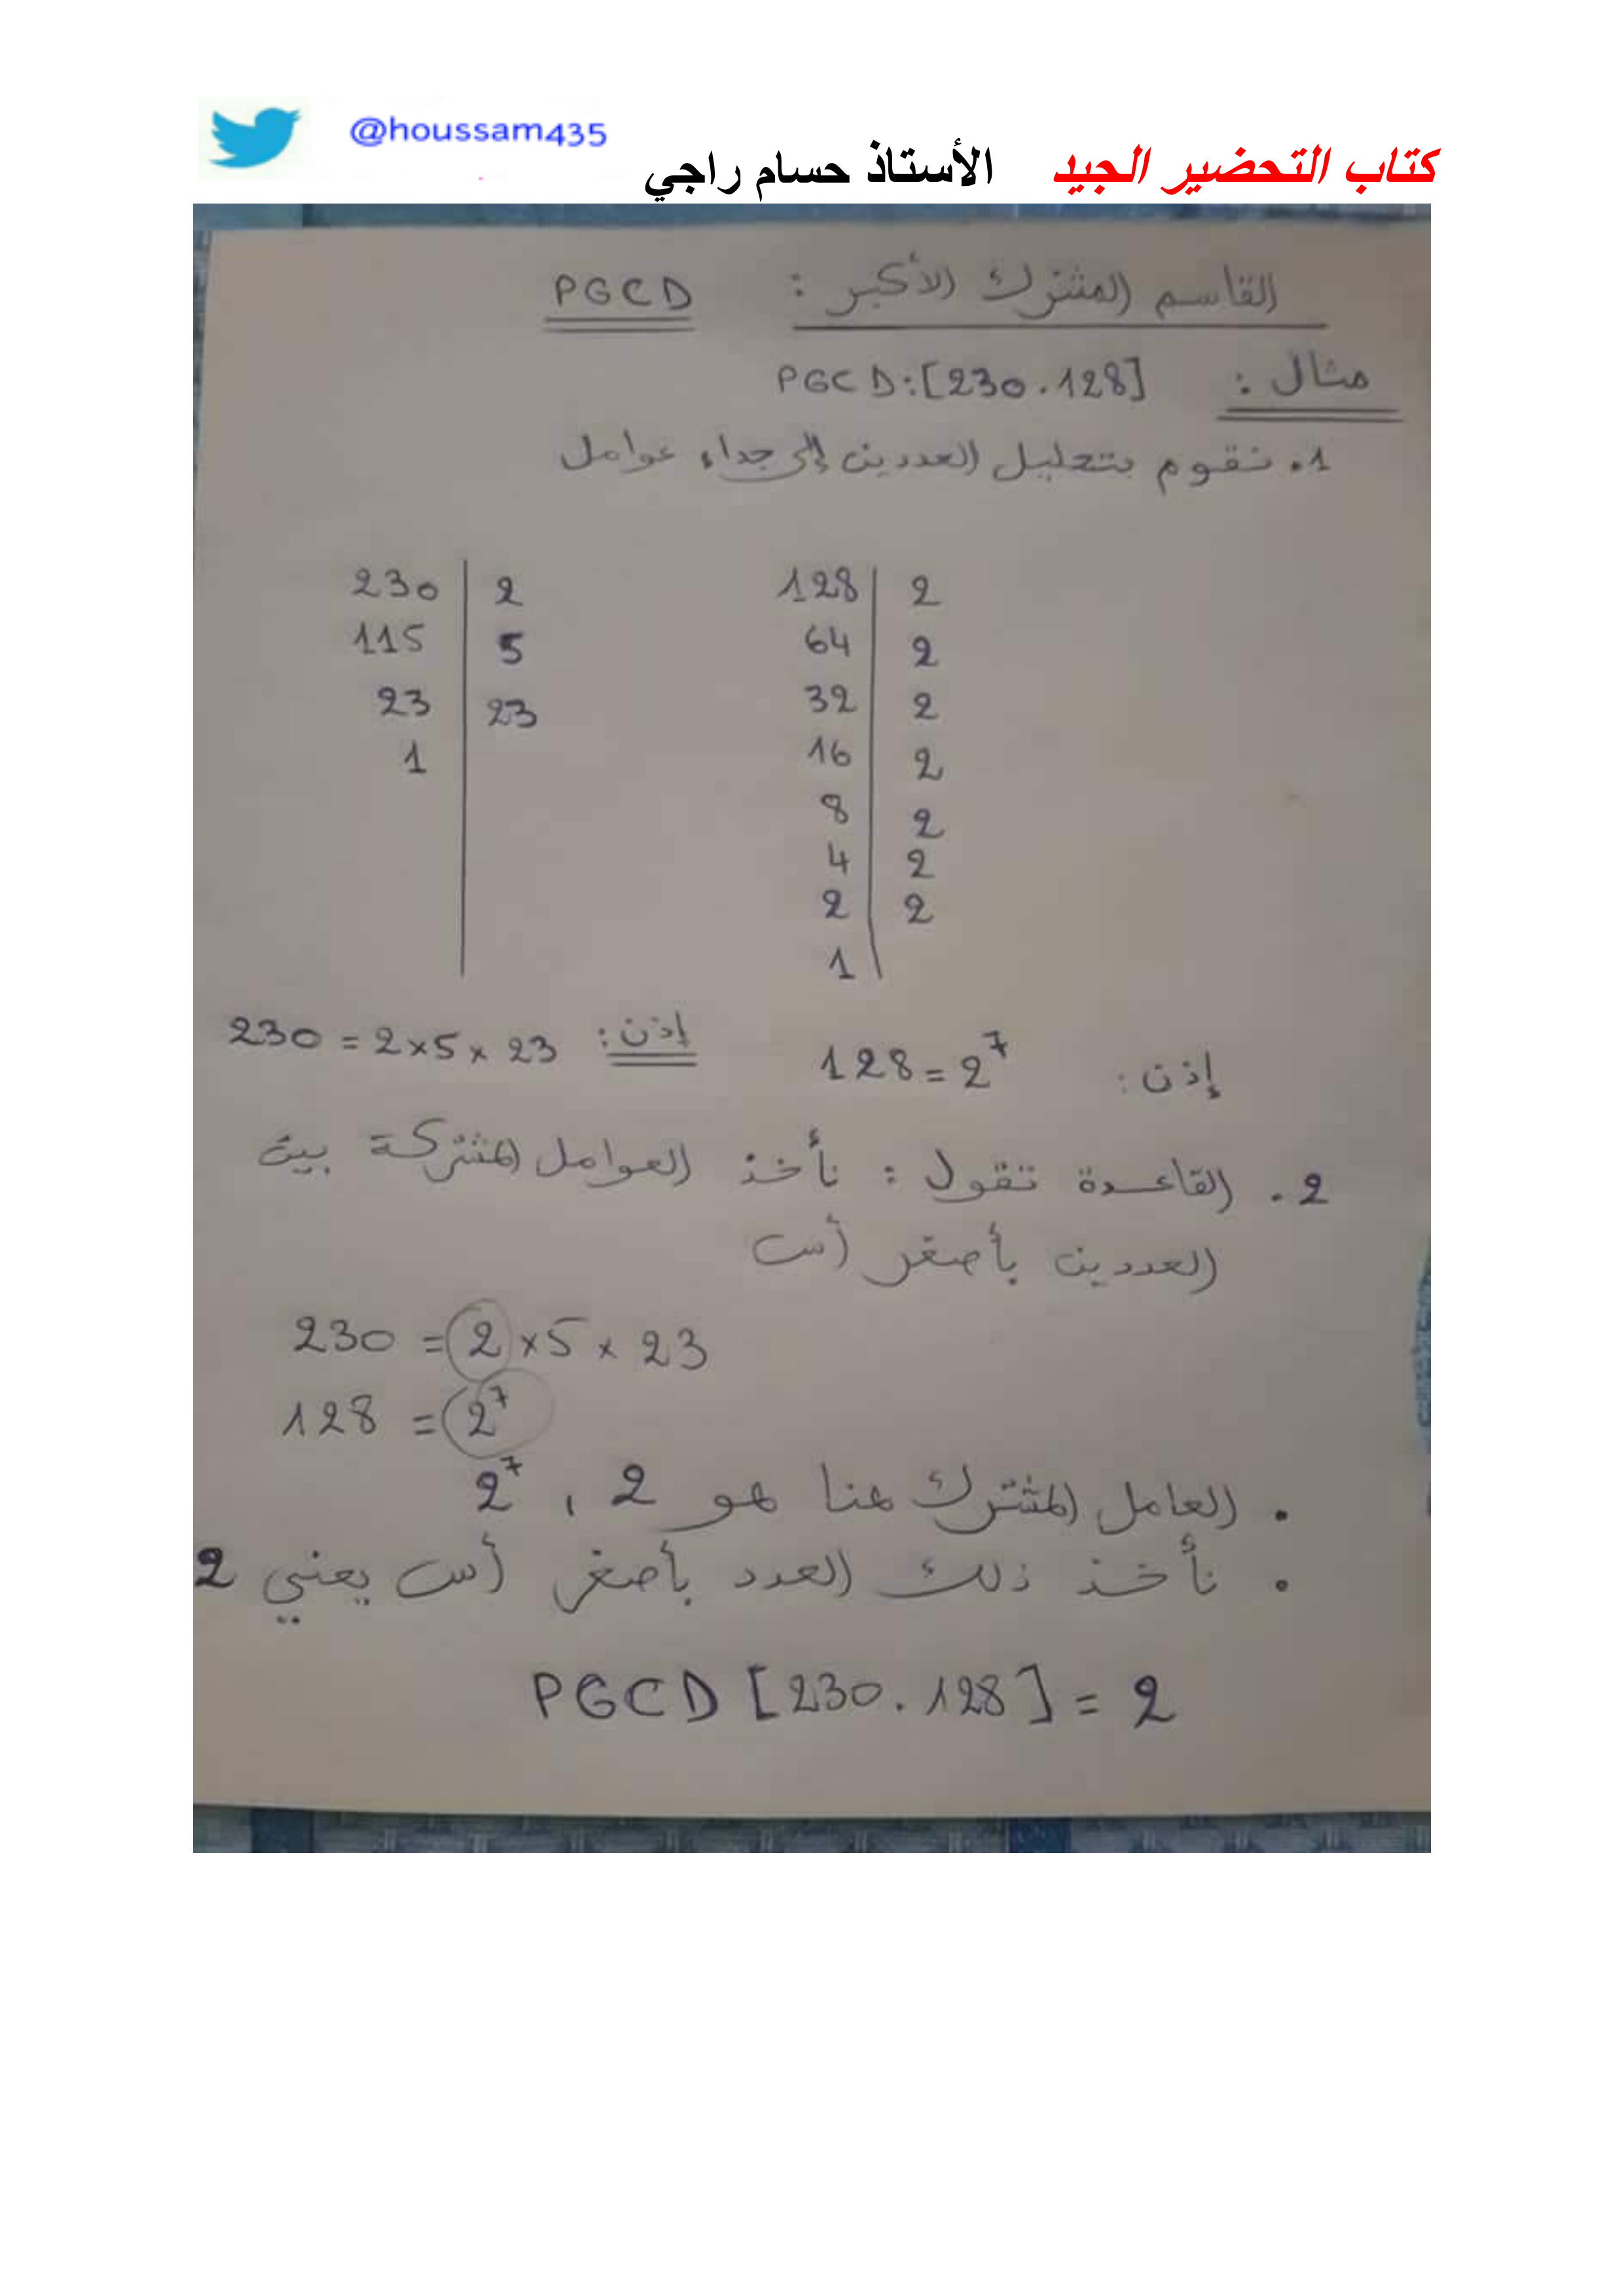 @houssam435
كتاب التحضير الجيد الأستاذ حسام راجي
القاسم المشترك الأكبر : PGCD
مثال : PGCD:[230.128]
1. نقوم بتحليل العددين إلى جداء عوامل
230 | 2 128 | 2
115 | 5 64 | 2
23 | 23 32 | 2
1 | 16 | 2
8 | 2
4 | 2
2 | 2
1 |
إذن : 128 = 2⁷ إذن : 230 = 2×5×23
2. القاعدة تقول : نأخذ العوامل المشتركة بين
العددين بأصغر أس
230 = 2×5×23
128 = 2⁷
• العامل المشترك هنا هو 2 ، 2⁷
• نأخذ ذلك العدد بأصغر أس يعني 2
PGCD [230.128] = 2